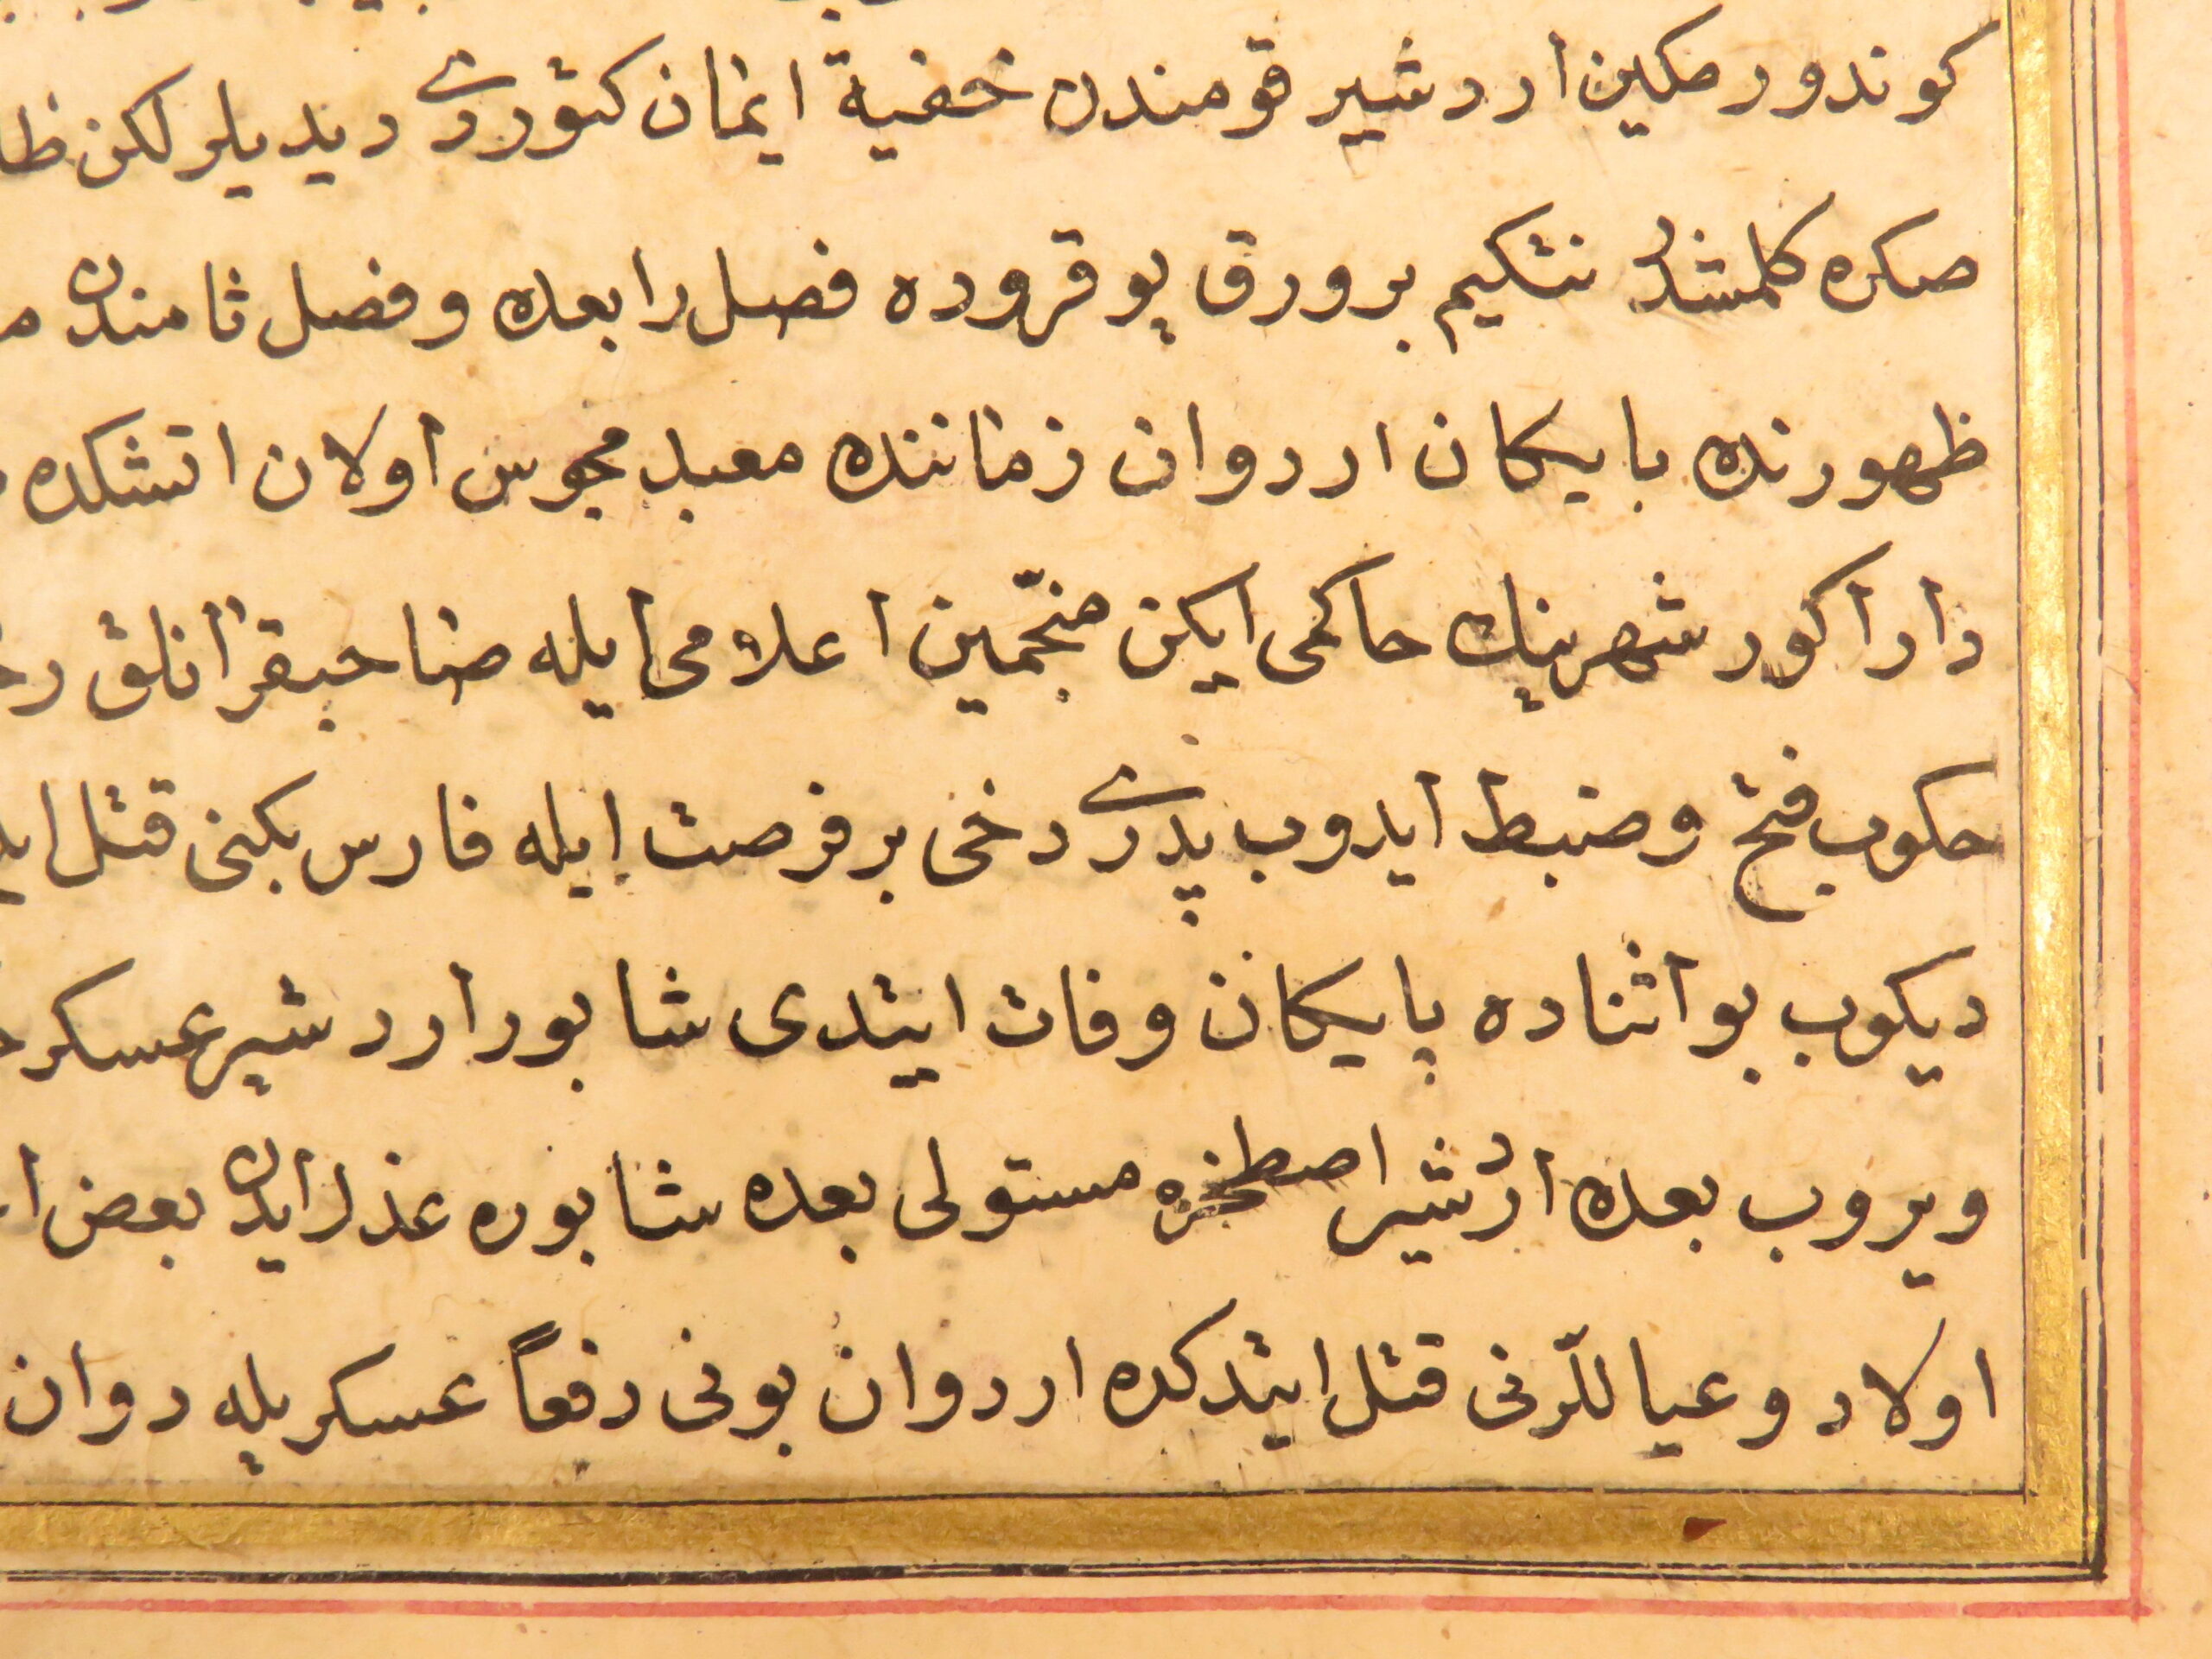 كوندورمكين اردشير قومندن خفية ايمان كتوردى ديديلر لكن
صكره كلمشدر نتكيم بر ورق يوقروده فصل رابعده و فصل ثامنده
ظهورنده بايكان اردوان زماننده معبد مجوس اولان اتشكده
داراكورد شهرينك حاكمى ايكن منجّمين اعلامى ايله صاحبقرانلق
چكوب فتح و ضبط ايدوب پدرى دخى بر فرصت ايله فارس بكنى قتل
ديكوب بو اثناده پايكان وفات ايتدى شابور اردشيره عسكر
ويروب بعده اردشير اصطخره مستولى بعده شابوره عذر ايدن بعض
اولاد و عياللرنى قتل ايتدكده اردوان بونى دفعاً عسكريله روان